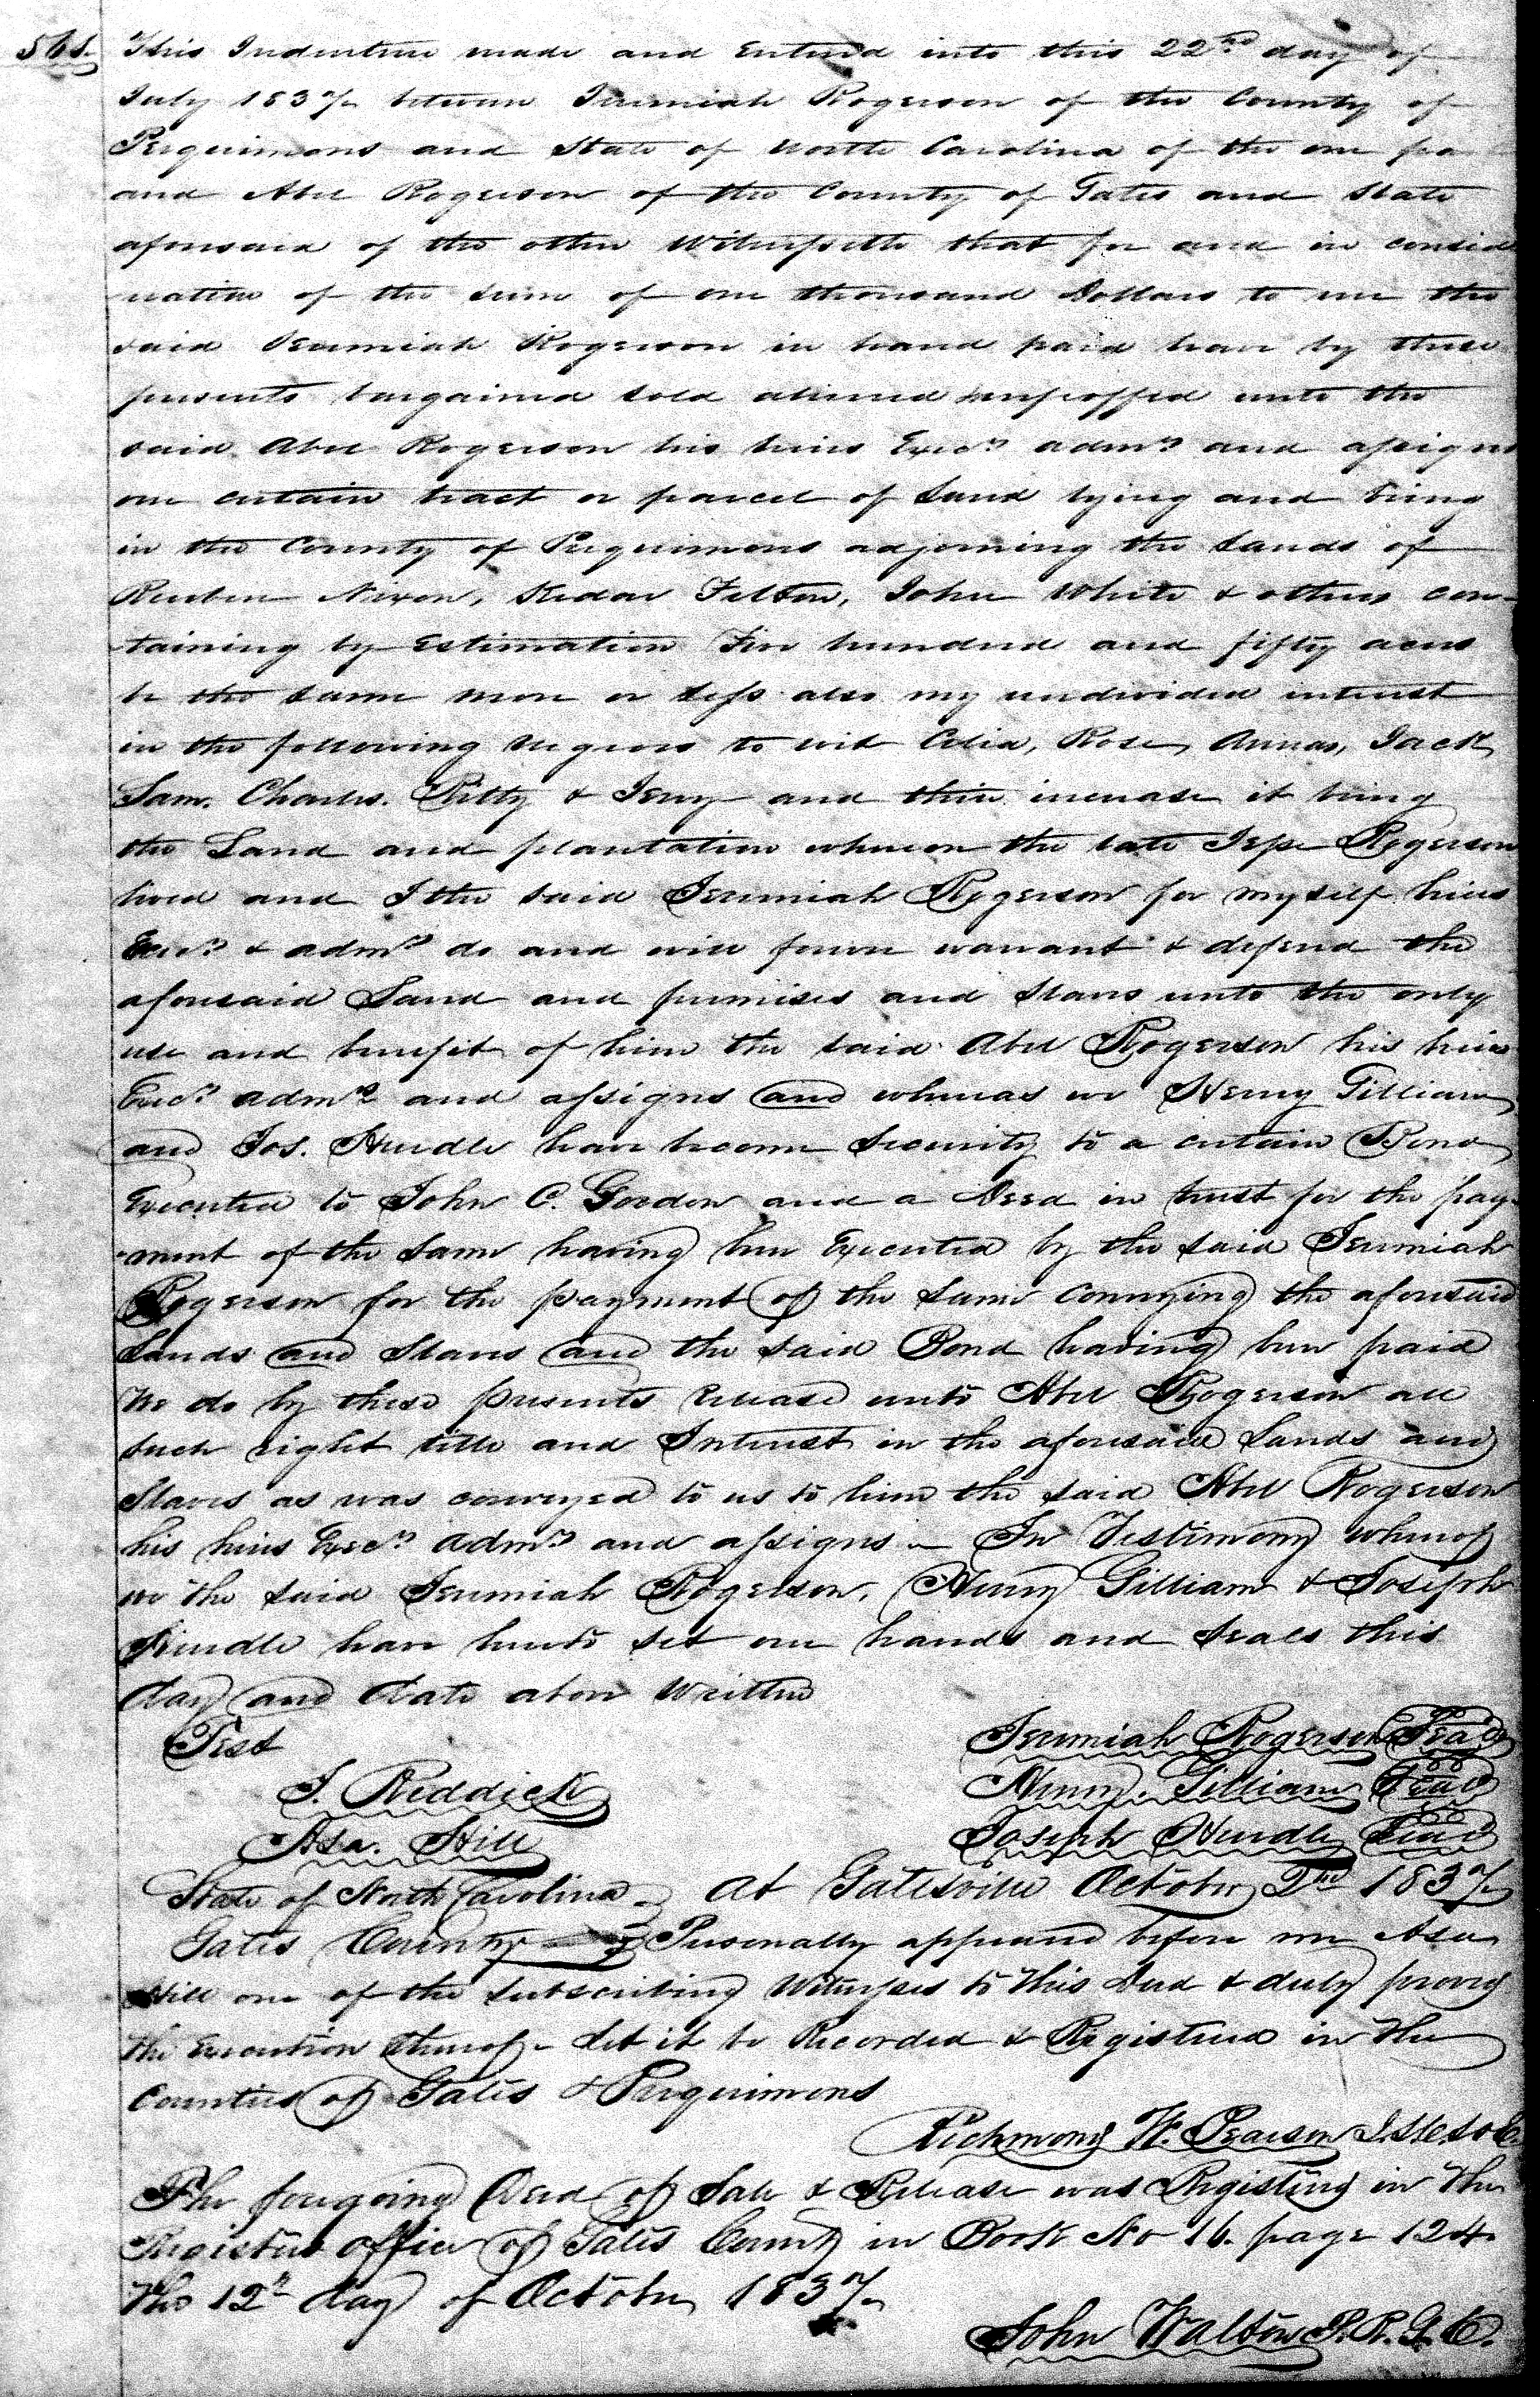 This Indenture made and Entered into this 22nd day of
July 1837 between Jeremiah Rogerson of the County of
Perquimons and State of North Carolina of the one pa
and Abel Rogerson of the County of Gates and State
aforesaid of the other Witnesseth that for and in consid
eration of the sum of one thousand Dollars to me the
said Jeremiah Rogerson in hand paid have by these
presents bargained sold aliened enfeoffed unto the
said Abel Rogerson his heirs Execrs admrs and assigns
one certain tract or parcel of Land lying and being
in the County of Perquimons adjoining the Lands of
Reuben Nixon, Kedar Felton, John White & others con-
taining by Estimation Five hundred and fifty acres
be the same more or less also my undivided interest
in the following Negroes to wit Celia, Rose, Annas, Jack,
Sam. Charles. Pitty & Jerry and their increase it being
the Land and plantation whereon the late Jesse Rogerson
lived and I the said Jeremiah Rogerson for myself heirs
Execrs & admrs do and will forever warrant & defend the
aforesaid Land and premises and Slaves unto the only
use and benefit of him the said Abel Rogerson his heirs
Execrs admrs and assigns and whereas we Henry Gilliam
and Jos. Hurdle have become Security to a certain Bond
Executed to John C. Gordon and a Deed in trust for the pay-
-ment of the same having been Executed by the said Jeremiah
Rogerson for the payment of the same conveying the aforesaid
Lands and Slaves and the said Bond having been paid
We do by these presents release unto Abel Rogerson all
such right title and Interest in the aforesaid Lands and
Slaves as was conveyed to us to him the said Abel Rogerson
his heirs Execrs admrs and assigns - In Testimony whereof
we the said Jeremiah Rogerson, Henry Gilliam & Joseph
Hurdle have hereto set our hands and seals this
day and date above written
Test Jeremiah Rogerson Seal
J. Riddick Henry. Gilliam Seal
Asa. Hill Joseph Hurdle Seal
State of North Carolina At Gatesville October 2nd 1837
Gates County Personally appeared before me Asa
Hill one of the subscribing Witnesses to this Deed & duly proves
the Execution thereof - Let it be Recorded & Registered in the
Counties of Gates & Perquimons
Richmond M. Pearson
The foregoing Deed of Sale & Release was Registered in the
Registers office of Gates County in Book No 16. page 124
the 12th day of October 1837
John Walton P. R. G. C.